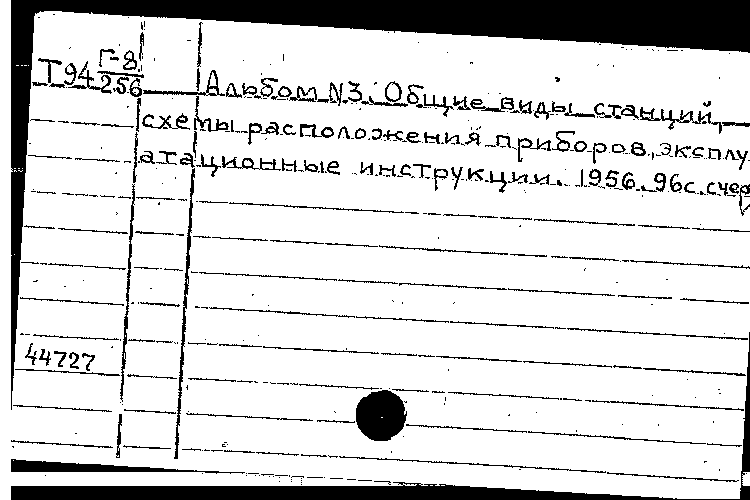 Т94 Г-8/256 Альбом №3. Общие виды станций,
схемы расположения приборов, эксплу
атационные инструкции. 1956. 96с. счер
44727